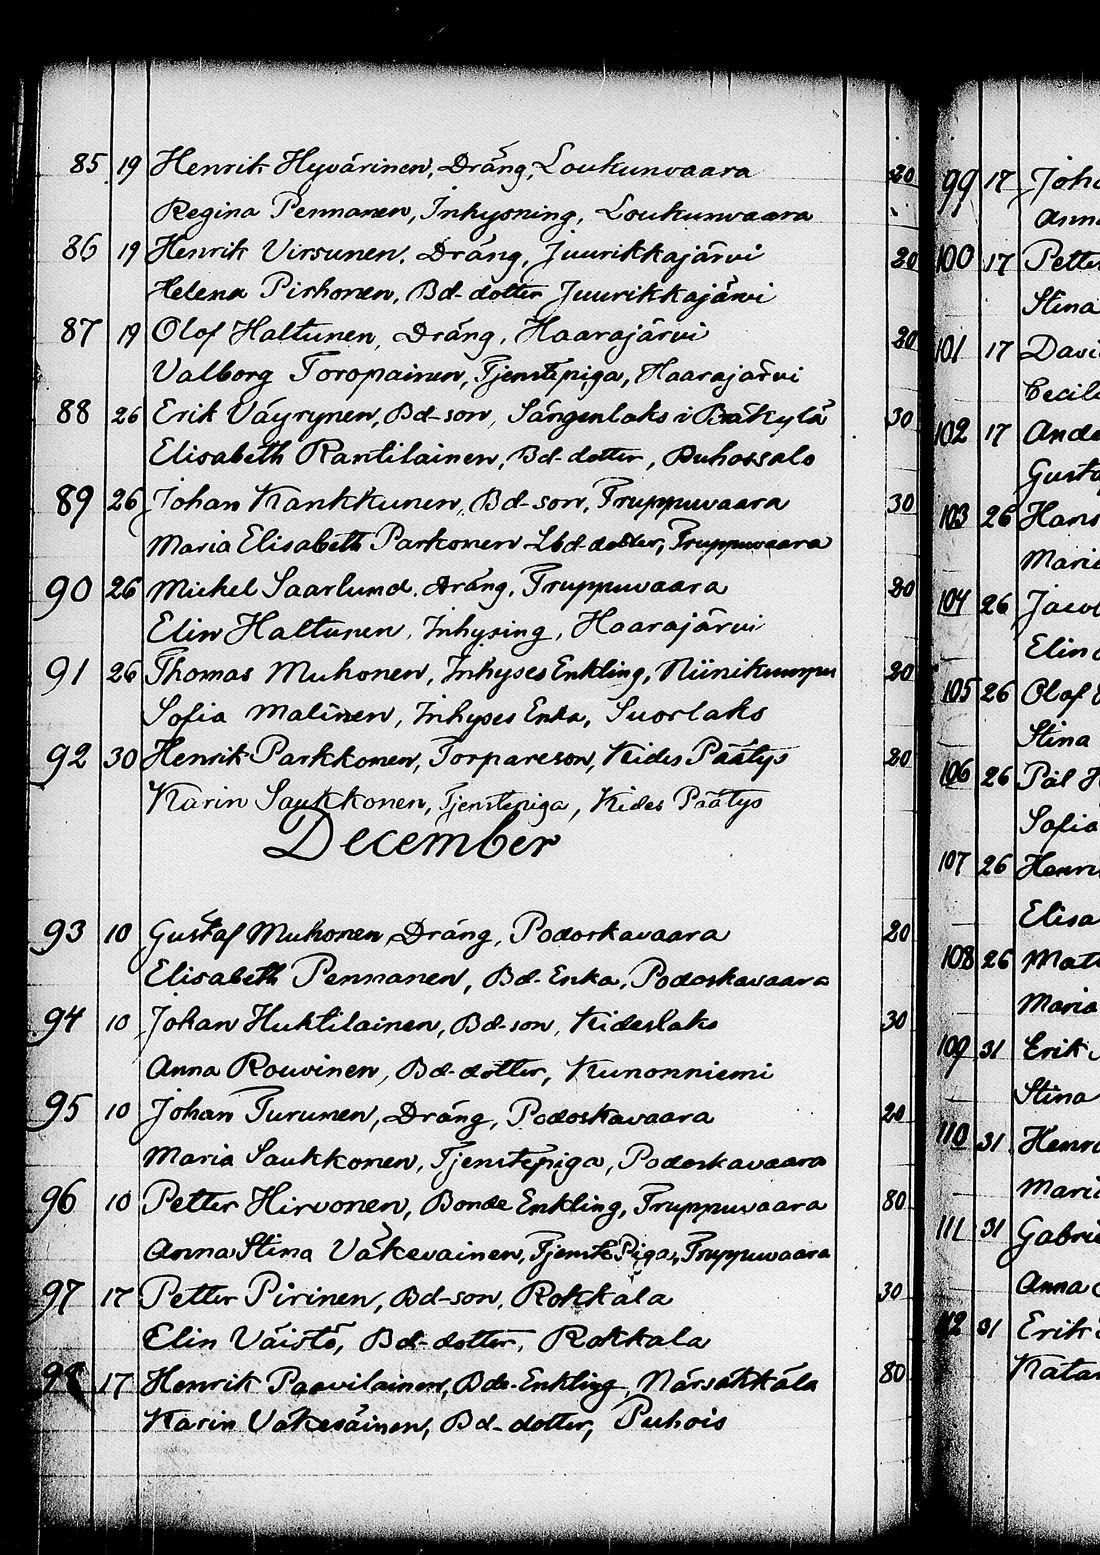 85 19 Henrik Hyvärinen, Dräng, Loukunvaara 20
Regina Pennanen, Inhysning, Loukunvaara
86 19 Henrik Virsunen, Dräng, Juurikkajärvi 20
Helena Pirhonen, Bd-dotter Juurikkajärvi
87 19 Olof Haltunen, Dräng, Haarajärvi 20
Valborg Toropainen, Tjenstepiga, Haarajärvi
88 26 Erik Väyrynen, Bd-son, Sängenlaks i Bräkylä 30
Elisabeth Rantilainen, Bd-dotter, Puhossalo
89 26 Johan Kankkunen, Bd-son, Truppuvaara 30
Maria Elisabeth Parkonen Lbd-dotter, Truppuvaara
90 26 Mickel Saarlund, Dräng, Truppuvaara 20
Elin Haltunen, Inhysing, Haarajärvi
91 26 Thomas Muhonen, Inhyses Enkling, Niinikumpu 20
Sofia Malinen, Inhyses Enka, Suorlaks
92 30 Henrik Parkkonen, Torpareson, Kides Päätys 20
Karin Saukkonen, Tjenstepiga, Kides Päätys
December
93 10 Gustaf Muhonen Dräng, Podoskavaara 20
Elisabeth Pennanen, Bd-Enka, Podoskavaara
94 10 Johan Huktilainen, Bd-son, Kideslaks 30
Anna Rouvinen, Bd-dotter, Kunonniemi
95 10 Johan Turunen, Dräng, Podoskavaara 20
Maria Saukkonen, Tjenstepiga, Podoskavaara
96 10 Petter Hirvonen, Bonde Enkling, Truppuvaara 80
Anna Stina Väkevainen, Tjenste Piga, Truppuvaara
97 17 Petter Pirinen, Bd-son, Rokkala 30
Elin Väistö, Bd-dotter, Rokkala
98 17 Henrik Paavilainen, Bde-Enkling, Närsäkkälä 80
Karin Vakeväinen, Bd-dotter, Puhois
99 17 Joha
Anna
100 17 Petter
Stina
101 17 Davi
Cecili
102 17 Ande
Gusta
103 26 Hans
Maria
104 26 Jaco
Elin
105 26 Olof
Stina
106 26 Pål H
Sofia
107 26 Henri
Elisa
108 26 Mats
Maria
109 31 Erik
Stina
110 31 Henri
Maria
111 31 Gabrie
Anna
112 31 Erik
Katar